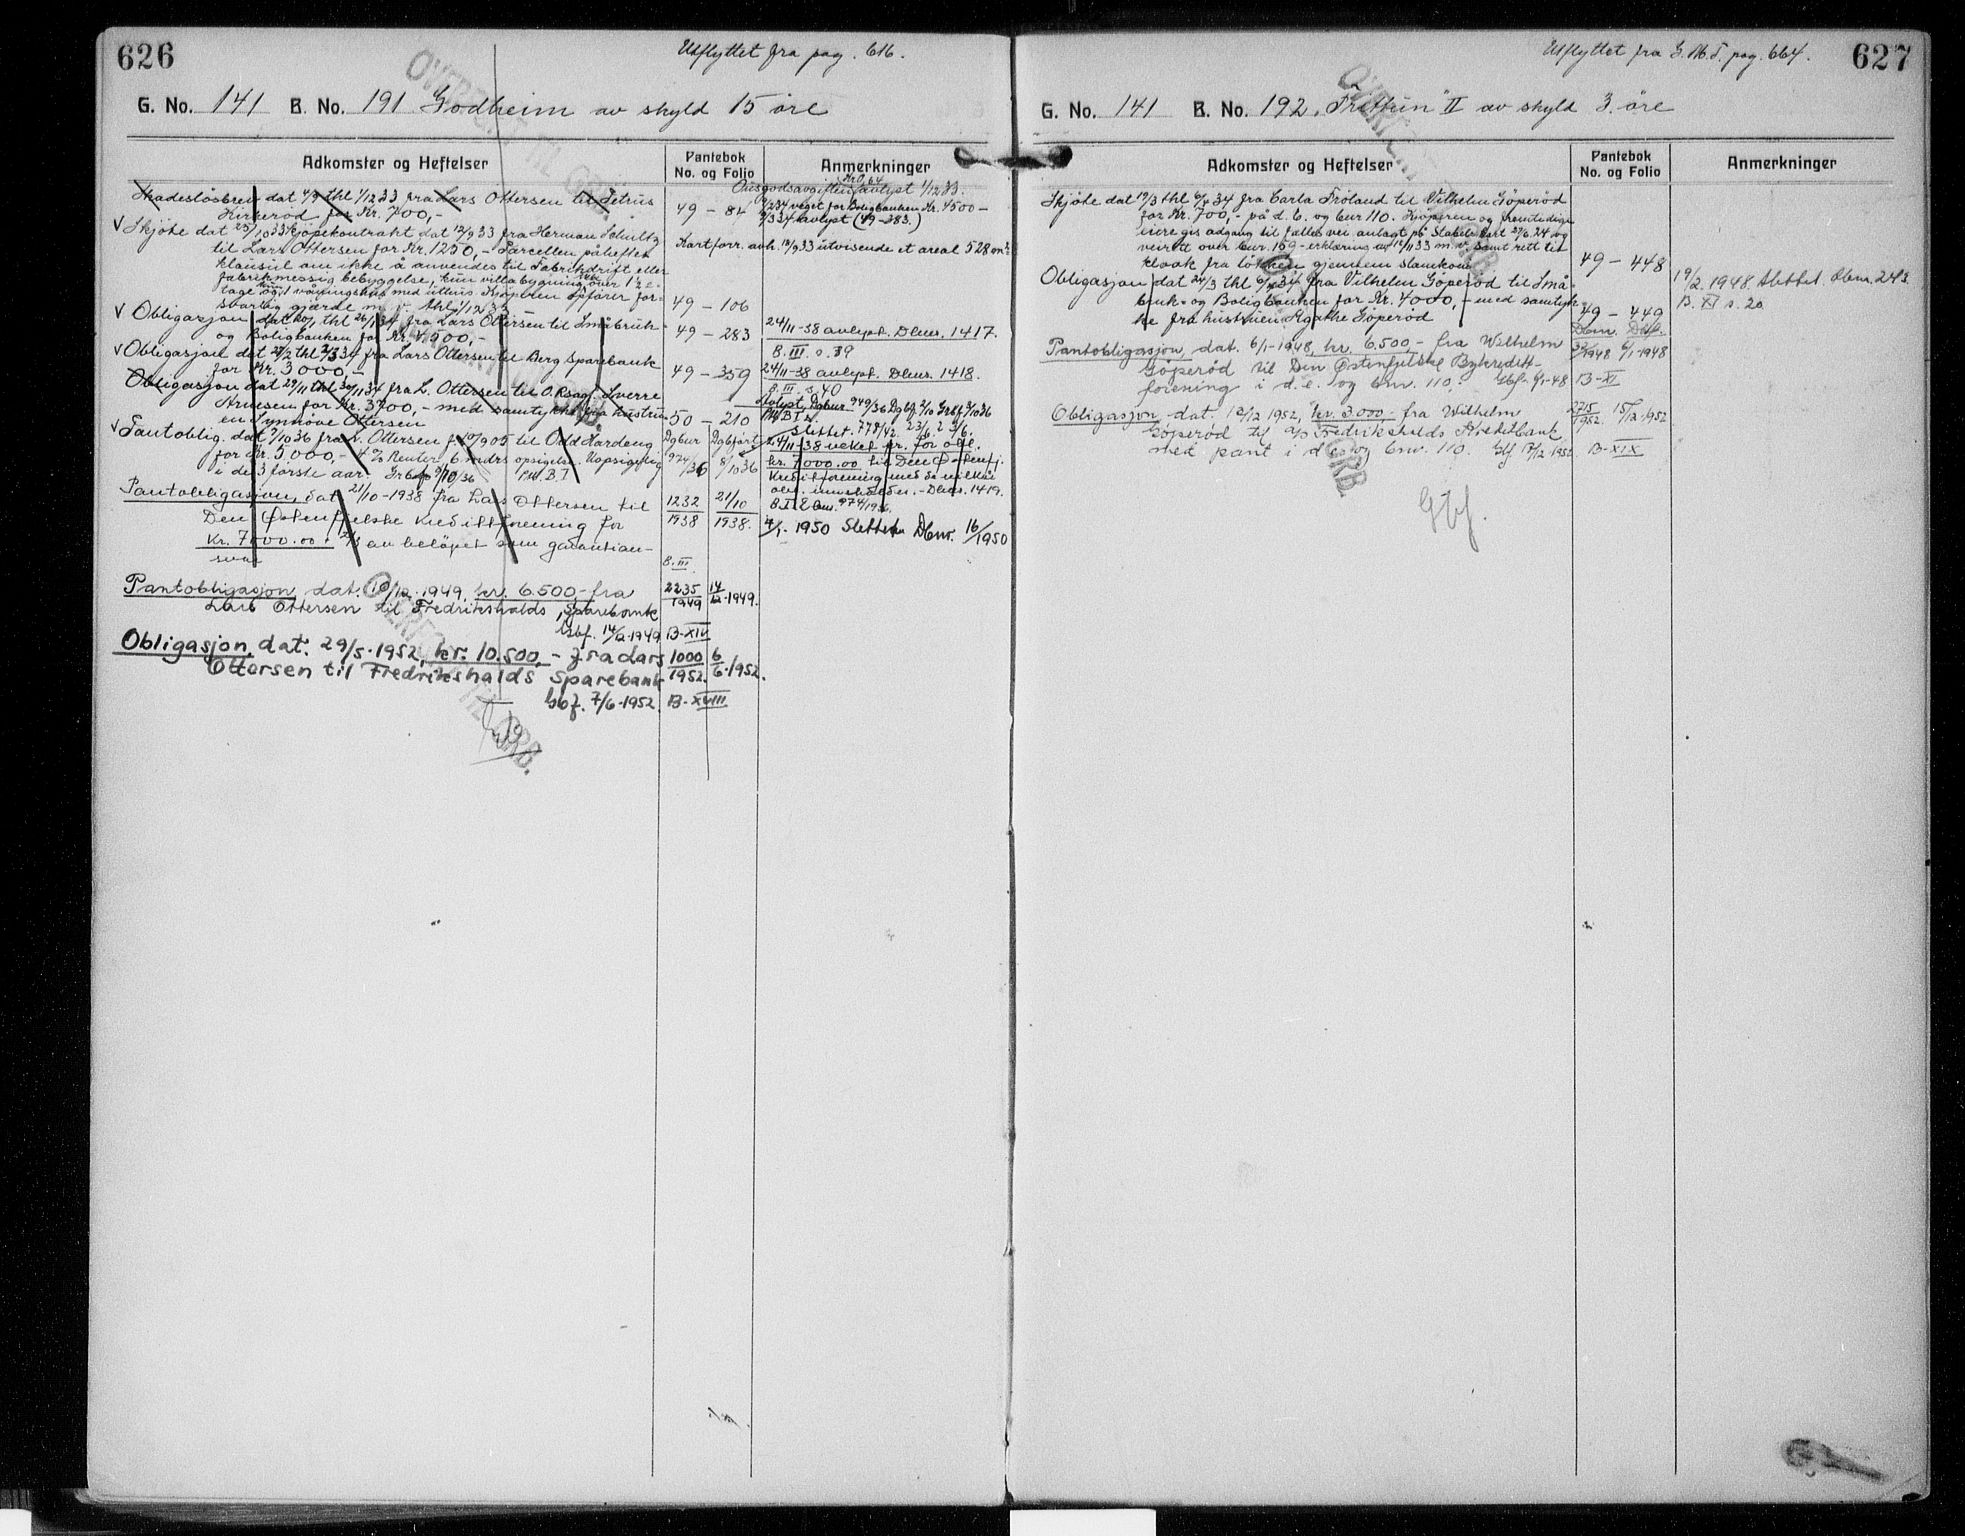 626
Utflyttet fra pag. 616.
G. No. 141 B. No. 191 Godheim av skyld 15 öre
OVERFØRT TIL GRB.
Adkomster og Heftelser
Pantebok
No. og Folio
Anmerkninger
Skadeslösbrev dat 4/9 thl 1/12 33 fra Lars Ottersen til Petrus
Kirkeröd for Kr. 700,-
49 - 84
avlyst 1/12 33.
2/2 34 veget for Boligbanken Kr. 4500 -
avlyst (49 - 283.)
V Skjöte dat 25/10 33 Kjöpekontrakt dat 12/9 33 fra Herman Schultz
Kartforr. avh. 13/9 33 utvisende et areal 528 m2
til Lars Ottersen for Kr. 1250,- Parcellen påheftet
klausul om ikke å anvendes til Fabrikdrift eller
fabrikmessig bebyggelse, kun villabygning over 1 1/2 e-
tage og 1 våningshus med uthus Kjöperen opförer for-
svarlig gjærde m.v. thl. 1/12 33
49 - 106
V Obligasjon dat 20/1 thl 26/1 34 fra Lars Ottersen til Småbruk-
og Boligbanken for Kr. 4500,-
49 - 283
24/11-38 avlyst. Dbnr. 1417.
B. III s. 39
V Obligasjon dat 28/2 thl 2/3 34 fra Lars Ottersen til Berg Sparebank
for Kr. 3000,-
49 - 359
24/11-38 avlyst. Dbnr. 1418.
B. III s. 40
Obligasjon dat 29/11 thl 30/11 34 fra L. Ottersen til O.Rsag. Sverre
Arnesen for Kr. 3700,- med samtykke fra hustru-
en Synnöve Ottersen
50 - 210
Avlyst, Dgbnr 949/36 Dgbf. 2/10 Grbf. 3/10 36
Slettet. 778/42 23/6. 23/6.
V Pantoblig. dat 7/10 36 fra L. Ottersen f 10/9 05 til Odd Hardeng
for Kr. 5.000,- 4 % Renter, 6 mdrs opsigelse. Uopsigelig
i de 3 første aar. Grbf 9/10/36 P.M.B.I
Dgbnr Dgbført
974/36 8/10 36
24/11-38 veket pr. for obl.
kr. 7000.00 til Den Østenfj.
Kreditforening med de vilkår
obl. inneholder. - Dbnr. 1419.
Pantobligasjon, dat 21/10-1938 fra Lars Ottersen til
Den Østenfjelske Kreditforening for
Kr. 7000.00. 2/3 av beløpet som garantian-
svar
1232
1938
21/10
1938.
B. III
4/1 - 1950 Slettet Dbnr. 16/1950
Pantobligasjon, dat. 10/12-1949, kr. 6.500,- fra
Lars Ottersen til Fredrikshalds Sparebank
Gbf. 14/12-1949
2235
1949
14
12-1949.
B-XIV
Obligasjon, dat. 29/5-1952, kr. 10.500,- fra Lars
Ottersen til Fredrikshalds Sparebank
Gbf. 7/6-1952.
1000
1952.
6
6-1952.
B-XVIII
OVERFØRT TIL GRB.
627
Utflyttet fra G. 116 I. pag. 664.
G. No. 141 B. No. 192. "Frittun" II av skyld 3 öre
OVERFØRT TIL GRB.
Adkomster og Heftelser
Pantebok
No. og Folio
Anmerkninger
Skjöte dat 19/3 thl 6/4 34 fra Carla Fröland til Vilhelm Göperöd
for Kr. 700,- på d. b. og bnr 110. Kjöperen og fremtidige
eiere gis adgang til fælles vei anlagt på Stakeb. kart 27/6 24 og
veirett over bnr. 159 - erklæring av 18/11 33 m.v. samt rett til
kloak fra tökken gjennem slamkum
49 - 448
Obligasjon dat 24/3 thl 6/4 34 fra Vilhelm Göperöd til Små-
bruk- og Boligbanken for Kr. 4000,- med samtyk-
ke fra hustruen Agathe Göperöd
49 - 449
19/2. 1948 slettet. Dbnr. 243.
B. XI s. 20
Pantobligasjon, dat. 6/1-1948, kr. 6.500,- fra Wilhelm
Göperød til Den Østenfjelske Bykreditt-
forening i d.e. og bnr. 110. Gbf. 9/1-48
Dbnr. Dbf.
32/1948 6/1-1948
B-XI
Obligasjon, dat. 12/12 1952, kr. 3.000,- fra Wilhelm
Göperød til a/s Fredrikshalds Kreditbank
med pant i d.e. og bnr. 110. Gbf 17/12 1952
2715
1952.
15/12-1952
B-XIX
OVERFØRT TIL GRB.
Gbf.